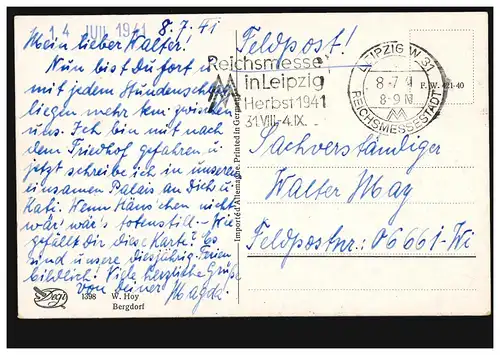 14. JUL 1941
8.7.41
Mein lieber Walter!
Nun bist Du fort und
mit jedem Stundenschlag
liegen mehr km zwischen
uns. Ich bin mit nach
dem Friedhof gefahren u.
jetzt schreibe ich in unserem
einsamen Palais an Dich u.
Kati. Wenn Hänschen nicht
wär wär's totenstill. - Wie
gefällt dir diese Karte? Es
sind unsere diesjährig. Ferien
bildlich! Viele herzliche Grüße
von Deiner Magda.
1398 W. Hoy
Bergdorf
Imprimé Allemagne. Printed in Germany
Feldpost!
Reichsmesse
in Leipzig
Herbst 1941
31.VIII-4.IX.
LEIPZIG W 31
8-7
8-9 N
REICHSMESSESTADT
P. W. 421-40
Sachverständiger
Walter May
Feldpostnr: 06661-Wi